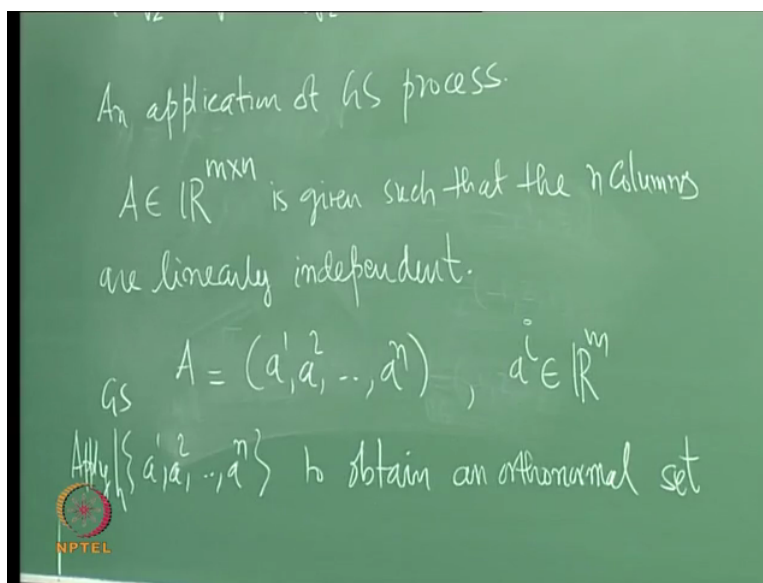 An application of GS process.
A ∈ ℝ^{m×n} is given such that the n columns
are linearly independent.
A = (a^1, a^2, .., a^n), a^i ∈ ℝ^m
GS
Apply {a^1, a^2, .., a^n} to obtain an orthonormal set
NPTEL